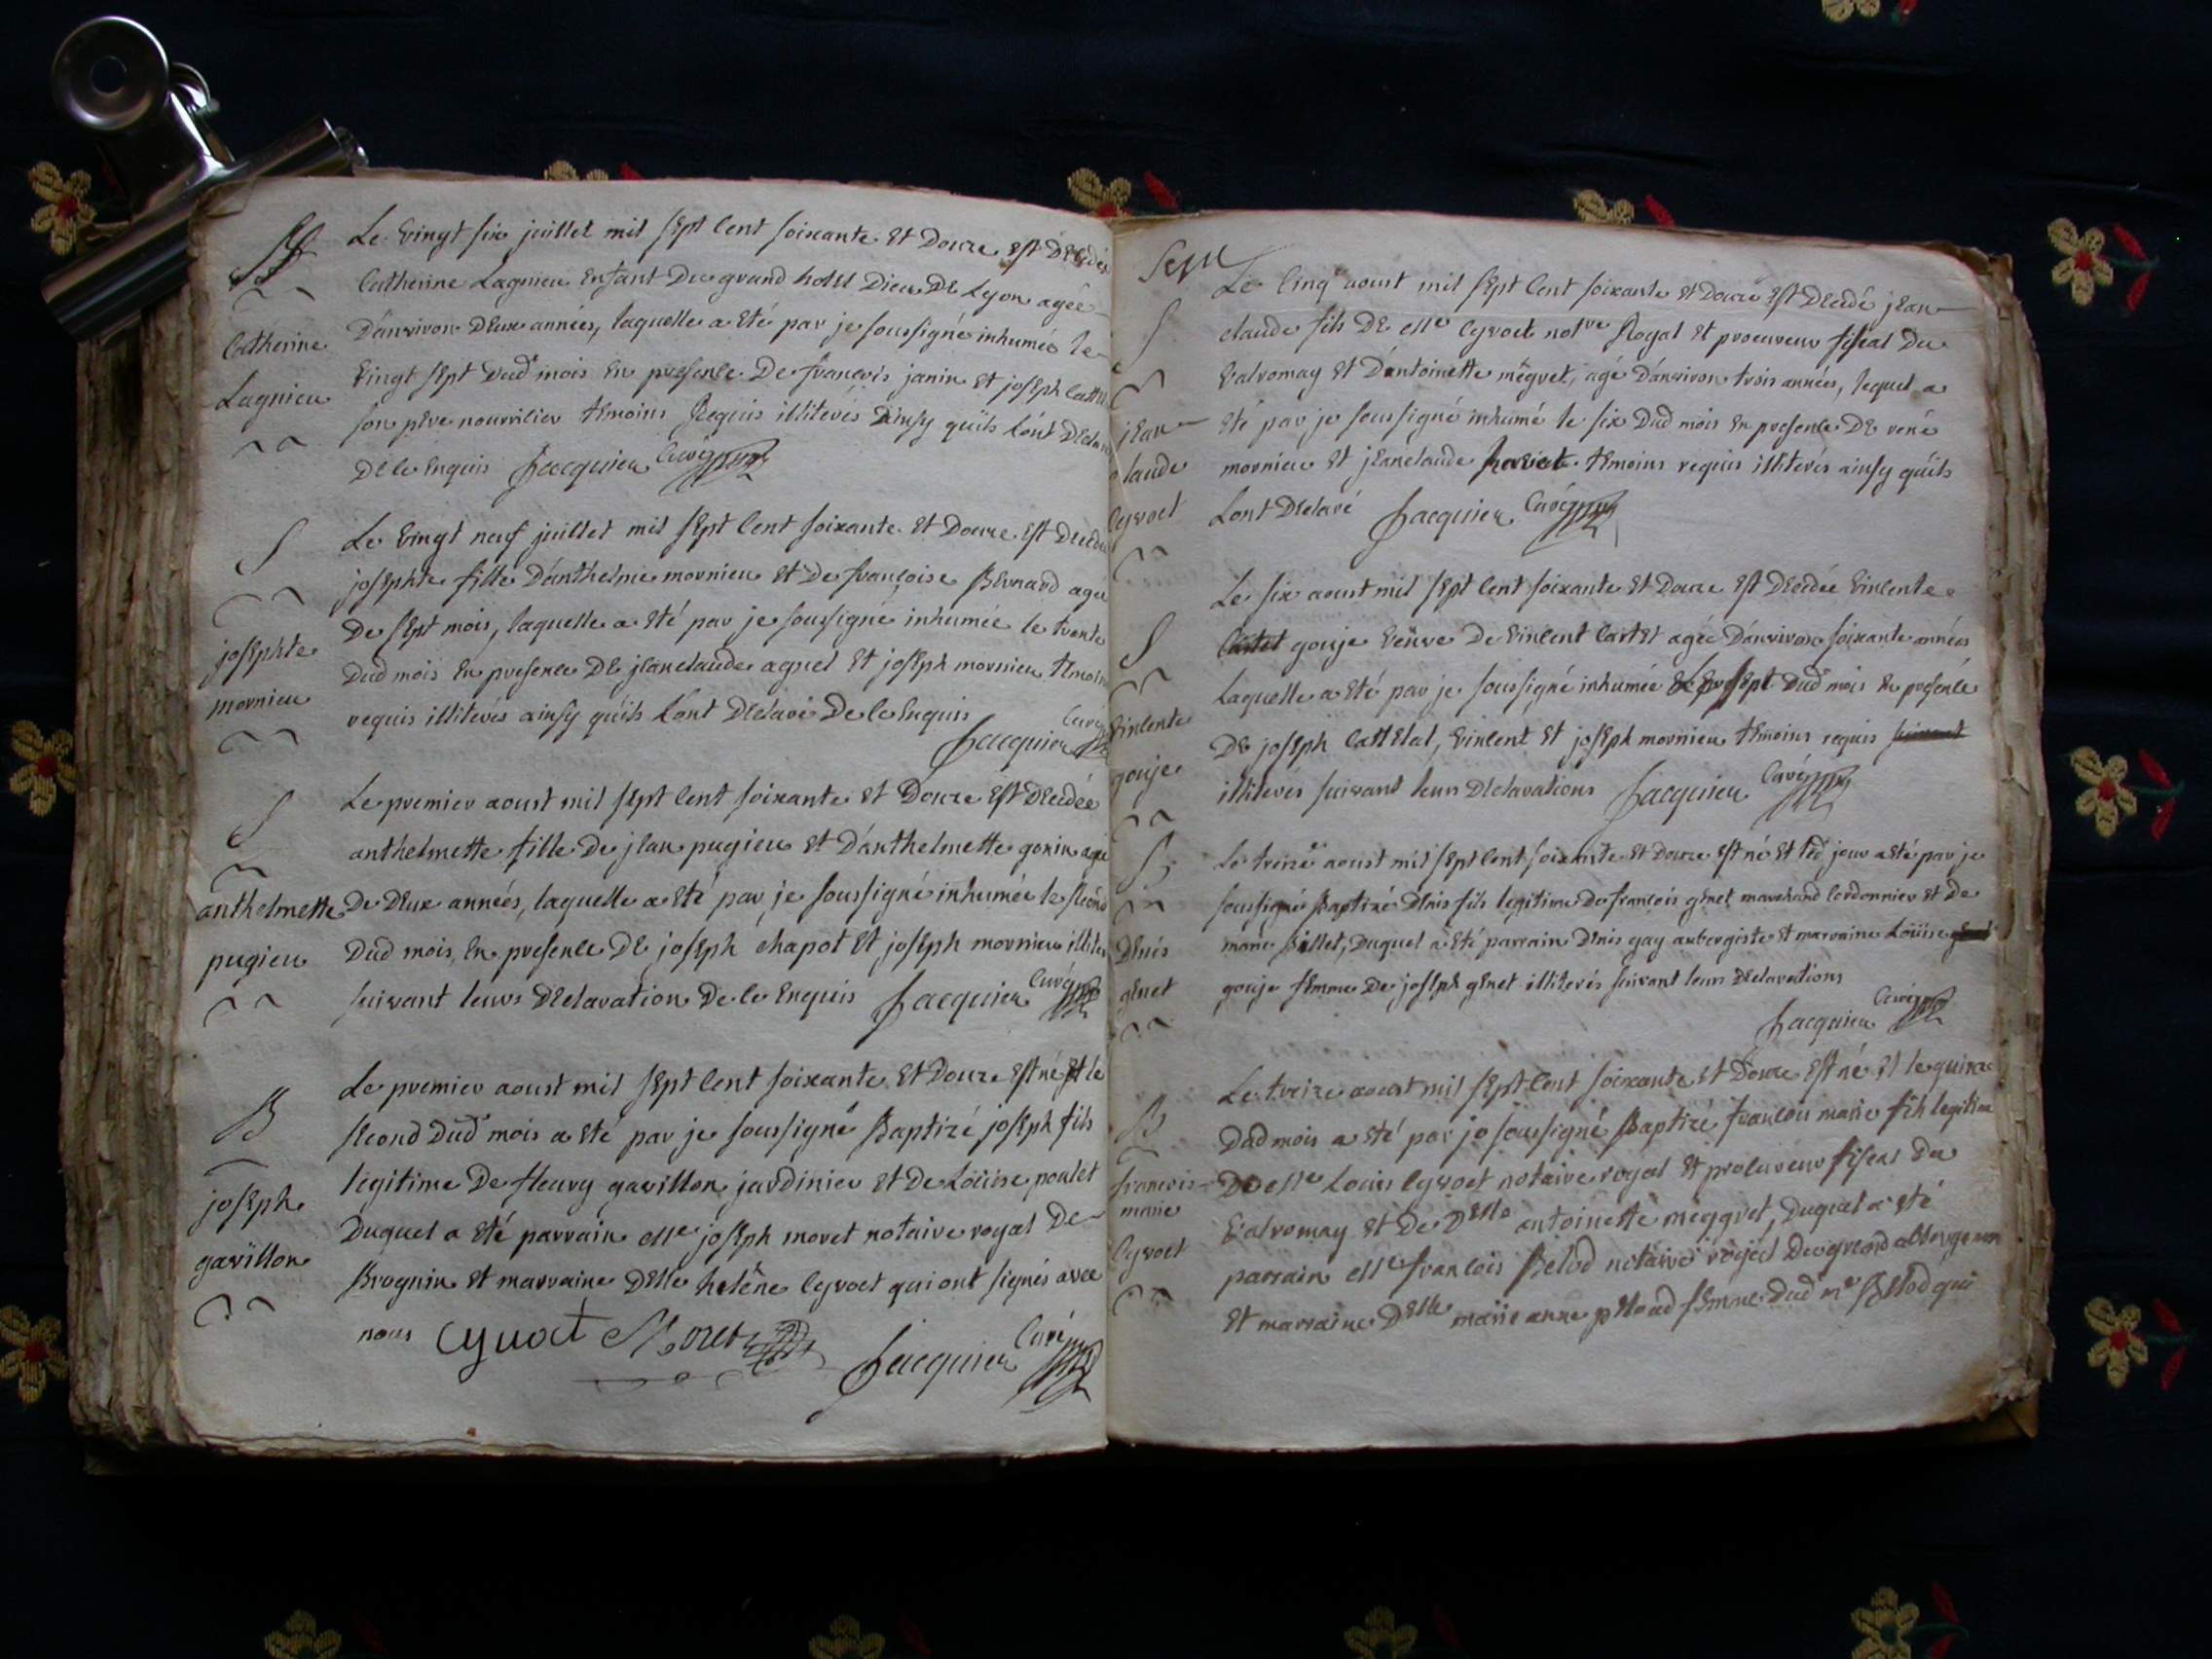 S
Catherine
Lagnieu
Le vingt six juillet mil sept cent soixante et douze est decedée
Catherine Lagnieu enfant du grand hotel Dieu de Lyon agée
d'anviron deux années, laquelle a eté par je soussigné inhumée le
vingt sept dud mois en presence de francois janin et joseph
son pere nourricier temoins requis illiterés ainsy qu'ils l'ont
de ce enquis Jacquier Curé
S
josephte
mornieu
Le vingt neuf juillet mil sept cent soixante et douze est decedée
josephte fille d'anthelme mornieu et de francoise Bernard agée
de sept mois, laquelle a eté par je soussigné inhumée le trente
dud mois en presence de jeanclaude agnel et joseph mornieu temoins
requis illiterés ainsy qu'ils l'ont declaré de ce enquis
Jacquier Curé
S
anthelmette
pugieu
Le premier aoust mil sept cent soixante et douze est decedée
anthelmette fille de jean pugieu et d'anthelmette gonin agée
de deux années, laquelle a eté par je soussigné inhumée le second
dud mois, en presence de joseph chapot et joseph mornieu
suivant leurs declaration de ce enquis Jacquier Curé
B
joseph
gavillon
Le premier aoust mil sept cent soixante et douze est né et le
second dud mois a eté par je soussigné Baptizé joseph fils
legitime de fleury gavillon jardinier et de Loüise poulet
duquel a eté parrain me joseph moret notaire royal de
Brognin et marraine Delle heléne Cyvoct qui ont signés avec
nous Cyvoct Moret Jacquier Curé
S
jean
claude
Cyvoct
Le cinq aoust mil sept cent soixante et douze est decedé jean
claude fils de me Cyvoct notre Royal et procureur fiscal du
valromay et d'antoinette mégret, agé d'anviron trois années, lequel a
eté par je soussigné inhumé le six dud mois en presence de rené
mornieu et jeanclaude temoins requis illiterés ainsy qu'ils
l'ont declaré Jacquier Curé
S
vincente
gouje
Le six aoust mil sept cent soixante et douze est decedée vincente
gouje veüve de vincent Cartet agée d'anviron soixante années
laquelle a eté par je soussigné inhumée le sept dud mois en presence
de joseph , vincent et joseph mornieu temoins requis
illiterés suivant leurs declarations Jacquier Curé
B
Denis
genet
Le treize aoust mil sept cent soixante et douze est né et led jour a eté par je
soussigné Baptizé Denis fils legitime de francois genet marchand cordonnier et de
marie Billet, duquel a eté parrain Denis gay aubergiste et marraine Loüise
gouje femme de joseph genet illiterés suivant leurs declarations
Jacquier Curé
B
francois
marie
Cyvoct
Le treize aoust mil sept cent soixante et douze est né et le quinze
dud mois a eté par je soussigné Baptizé francois marie fils legitime
de me Louis Cyvoct notaire royal et procureur fiscal du
valromay et de Delle antoinette mégret, duquel a eté
parrain me francois Belod notaire royal du grand abbergement
et marraine Delle marie anne femme dud me Belod qui